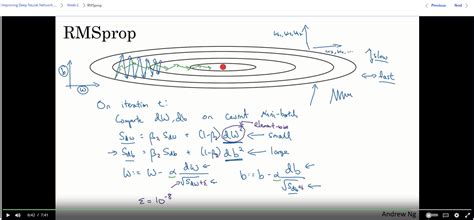 Improving Deep Neural Network
Week 2
RMSprop
Previous
Next
RMSprop
w₁, w₂, w₃
w₂, w₄, ...
slow
fast
b
w
On iteration t:
Compute dW, db on current mini-batch
element-wise
S_dw = β₂ S_dw + (1-β₂) dW² ← small
→ S_db = β₂ S_db + (1-β₂) db² ← large
w := w - α dw/√(S_dw+ε) ← b := b - α db/√(S_db+ε) ←
ε = 10⁻⁸
Andrew Ng
7:41